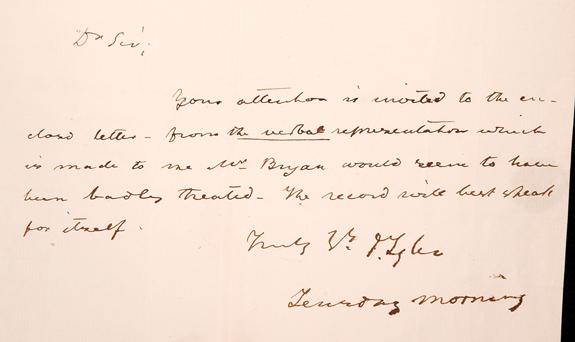 Dr Sir;
Your attention is invited to the en-
closed letter - from the verbal representation which
is made to me Mr Bryan would seem to have
been badly treated - The record will best speak
for itself.
Truly Yrs J. Tyler
Teusday morning